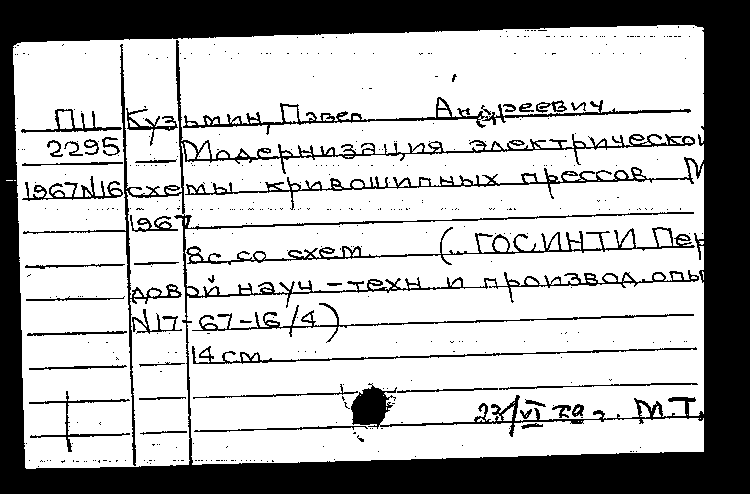 П11 Кузьмин, Павел Андреевич.
2295 Модернизация электрической
1967N16 схемы кривошипных прессов. М
1967.
8с. со схем. (... ГОСИНТИ. Пер
довой науч-техн и производ. опы
N17-67-16/4)
14 см.
М.Т.